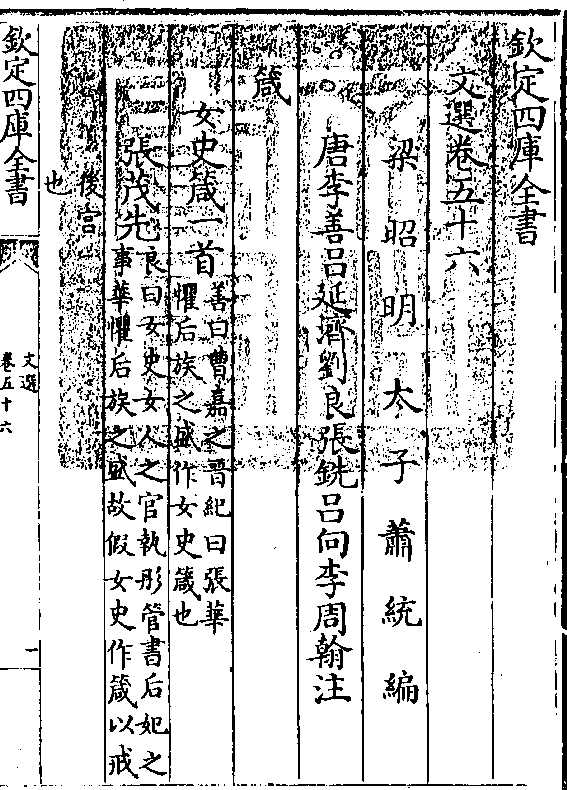 欽定四庫全書
文選卷五十六
梁昭明太子蕭統編
唐李善呂延濟劉良張銑呂向李周翰注
箴
女史箴一首
善曰曹嘉之晉紀曰張華
懼后族之盛作女史箴也
張茂先
良曰女史女人之官執彤管書后妃之
事華懼后族之盛故假女史作箴以戒
後宮
也
欽定四庫全書
文選
卷五十六
一